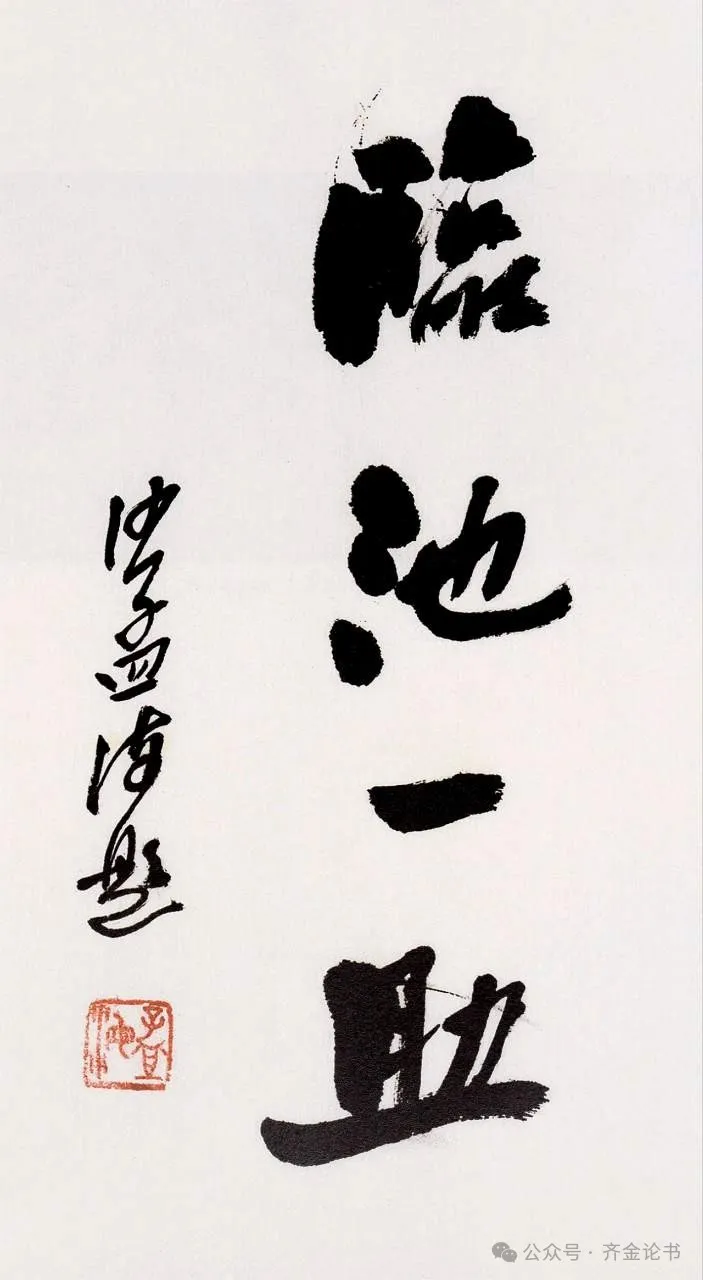 臨池一助
沙孟海題
孟海
公众号·齐金论书